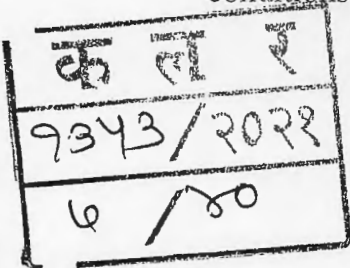 क ल र
१३५३/२०२२
७/४०